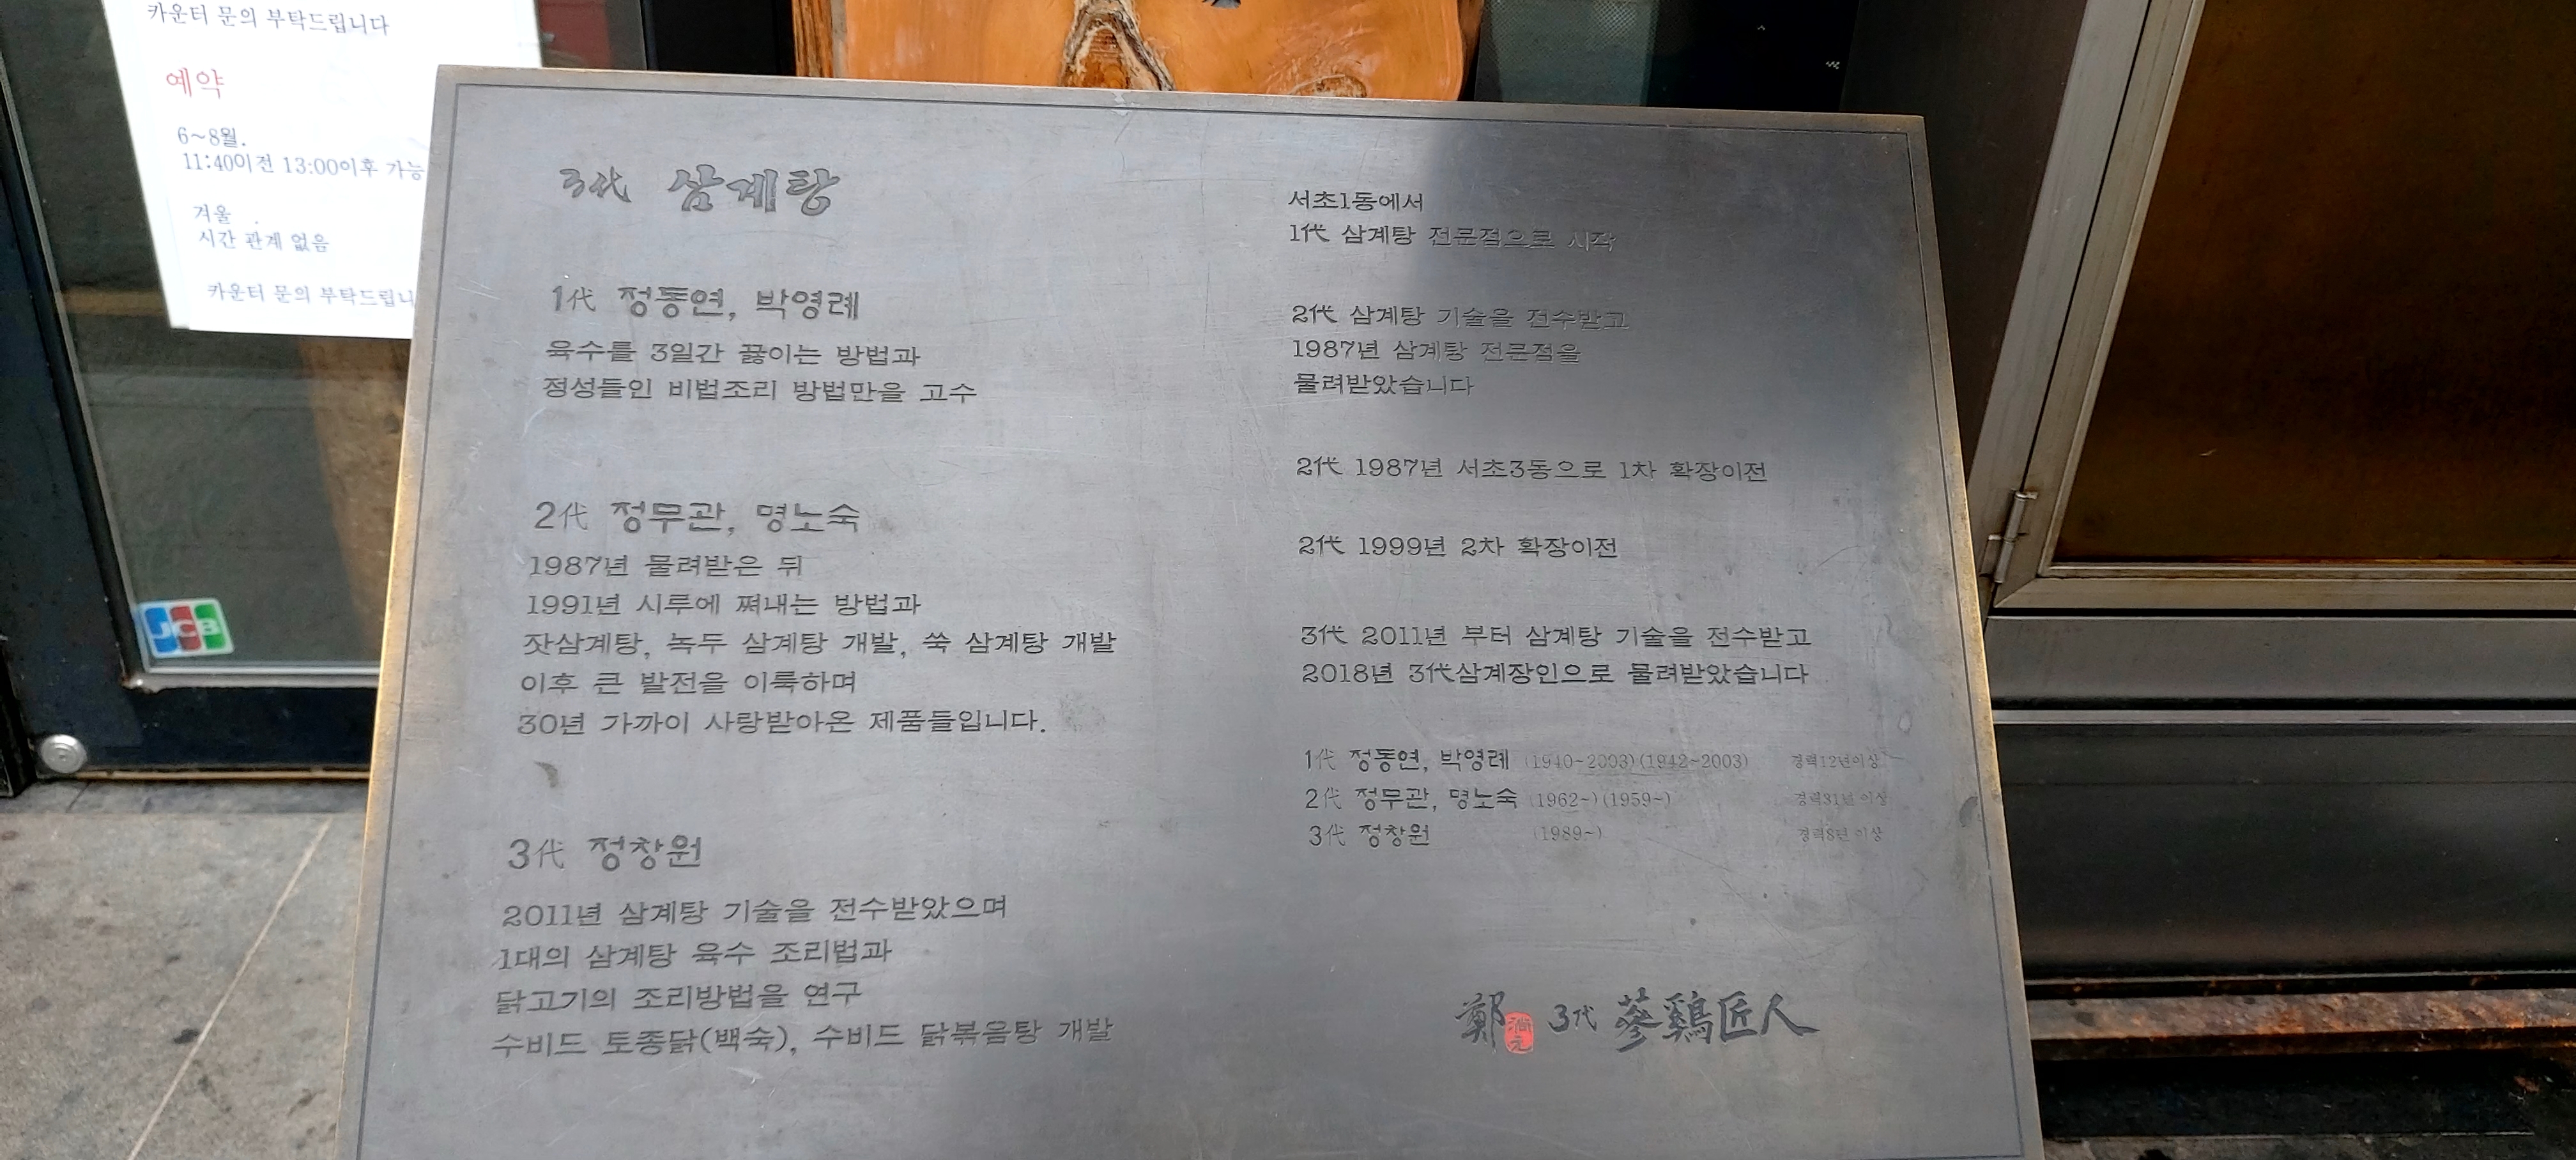 카운터 문의 부탁드립니다
예약
6~8월.
11:40이전 13:00이후 가능
겨울 .
시간 관계 없음
카운터 문의 부탁드립니
JCB
3代 삼계탕
1代 정동연, 박영례
육수를 3일간 끓이는 방법과
정성들인 비법조리 방법만을 고수
2代 정무관, 명노숙
1987년 물려받은 뒤
1991년 시루에 쪄내는 방법과
잣삼계탕, 녹두 삼계탕 개발, 쑥 삼계탕 개발
이후 큰 발전을 이룩하며
30년 가까이 사랑받아온 제품들입니다.
3代 정창원
2011년 삼계탕 기술을 전수받았으며
1대의 삼계탕 육수 조리법과
닭고기의 조리방법을 연구
수비드 토종닭(백숙), 수비드 닭볶음탕 개발
서초1동에서
1代 삼계탕 전문점으로 시작
2代 삼계탕 기술을 전수받고
1987년 삼계탕 전문점을
물려받았습니다
2代 1987년 서초3동으로 1차 확장이전
2代 1999년 2차 확장이전
3代 2011년 부터 삼계탕 기술을 전수받고
2018년 3代삼계장인으로 물려받았습니다
1代 정동연, 박영례 (1940~2003)(1942~2003) 경력12년이상
2代 정무관, 명노숙 (1962~)(1959~) 경력31년 이상
3代 정창원 (1989~) 경력8년 이상
鄭 3代 蔘鷄匠人